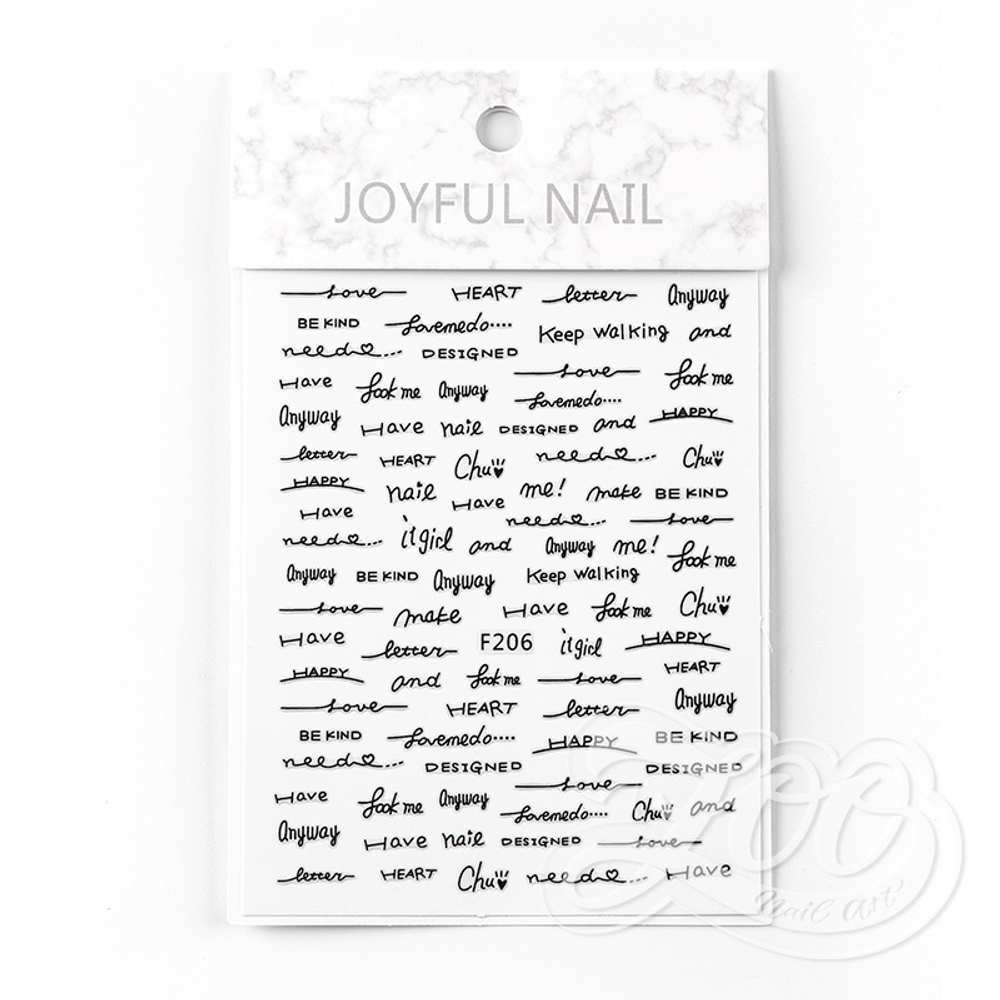 JOYFUL NAIL
Love HEART letter Anyway
BE KIND Lovemedo.... Keep walking and
need... DESIGNED
Have Look me Anyway Love Look me
Lovemedo....
Anyway Have nail DESIGNED and HAPPY
letter HEART Chu need... Chu
HAPPY nail Have me! make BE KIND
Have need... Love
need... it girl and Anyway me! Look me
Anyway BE KIND Anyway Keep walking
Love make Have Look me Chu
Have letter F206 it girl HAPPY
HAPPY and Look me Love HEART
Love HEART letter Anyway
BE KIND Lovemedo.... HAPPY BE KIND
need... DESIGNED DESIGNED
Love
Have Look me Anyway Lovemedo.... Chu and
Anyway Have nail DESIGNED Love
letter HEART Chu need... Have
ZOO
Nail Art